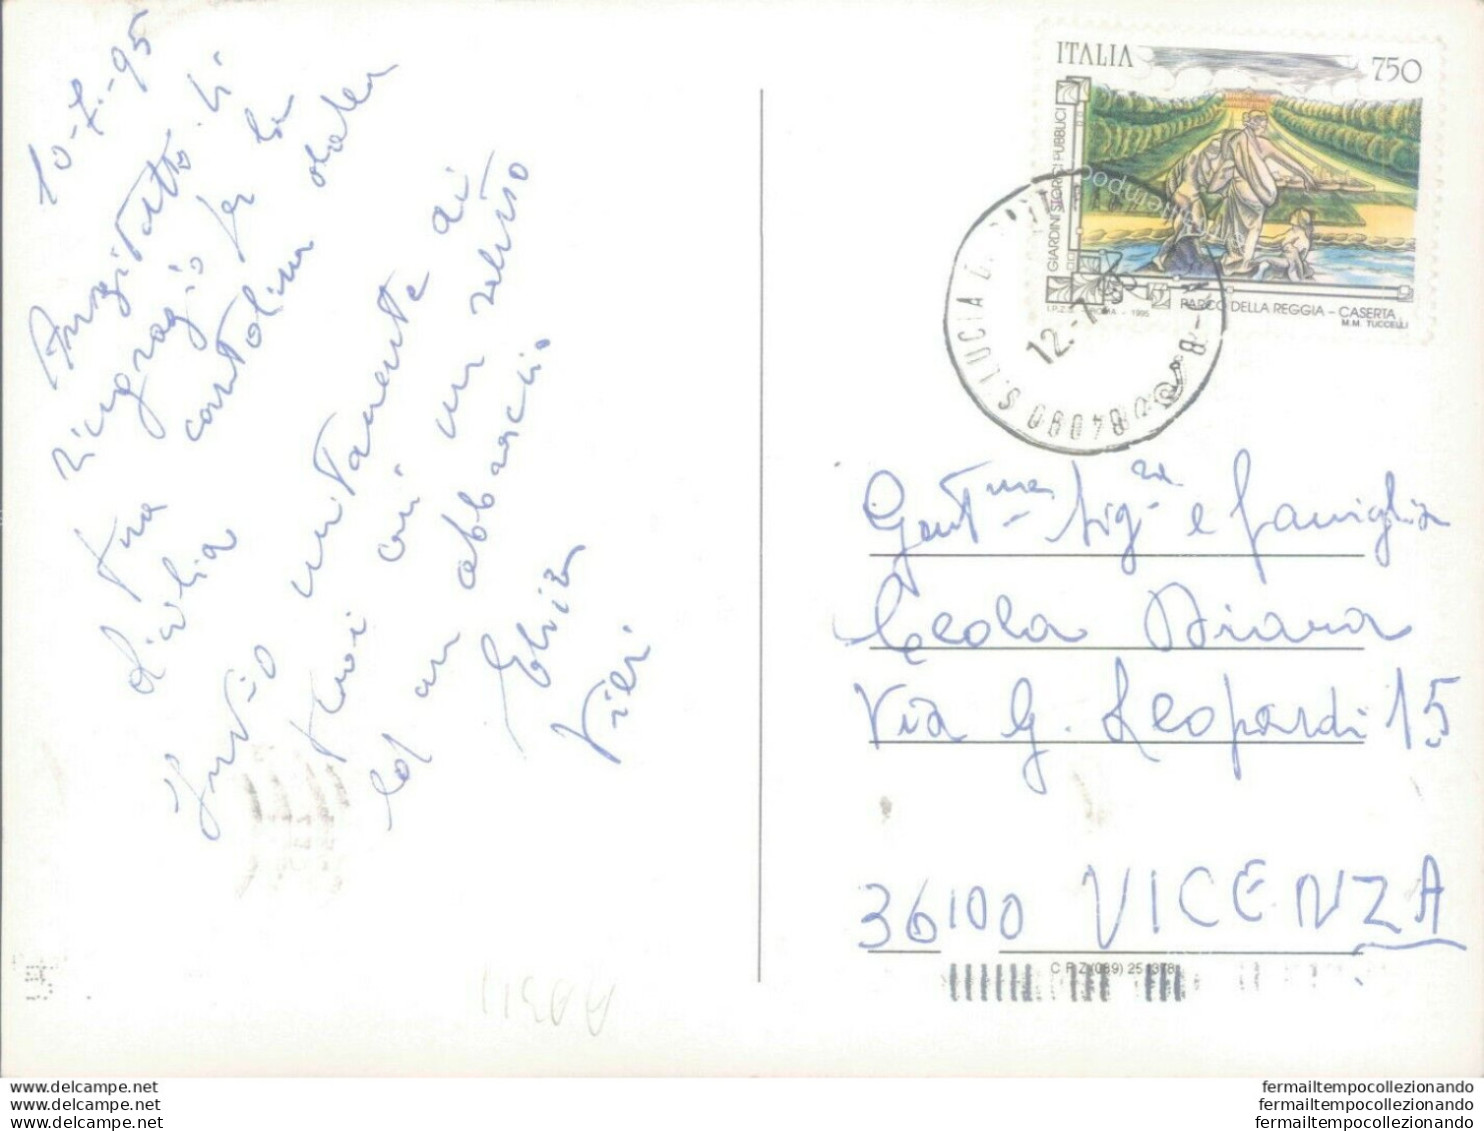 10-7-95
Anzitutto. ti
ringrazio per la
tua cartolina dalla
Invio unitamente ai
tuoi cari un saluto
ed un abbraccio.
ITALIA 750
GIARDINI STORICI PUBBLICI
PARCO DELLA REGGIA - CASERTA
I.P.Z.S. ROMA - 1995 M.M. TUCCELLI
84080 S. LUCIA
12.-7.
Gent.ma Sig.ra e famiglia
Diana
Via G. Leopardi 15
36100 VICENZA
C P Z (089) 25
A0311
www.delcampe.net
www.delcampe.net
www.delcampe.net
fermailtempocollezionando
fermailtempocollezionando
fermailtempocollezionando